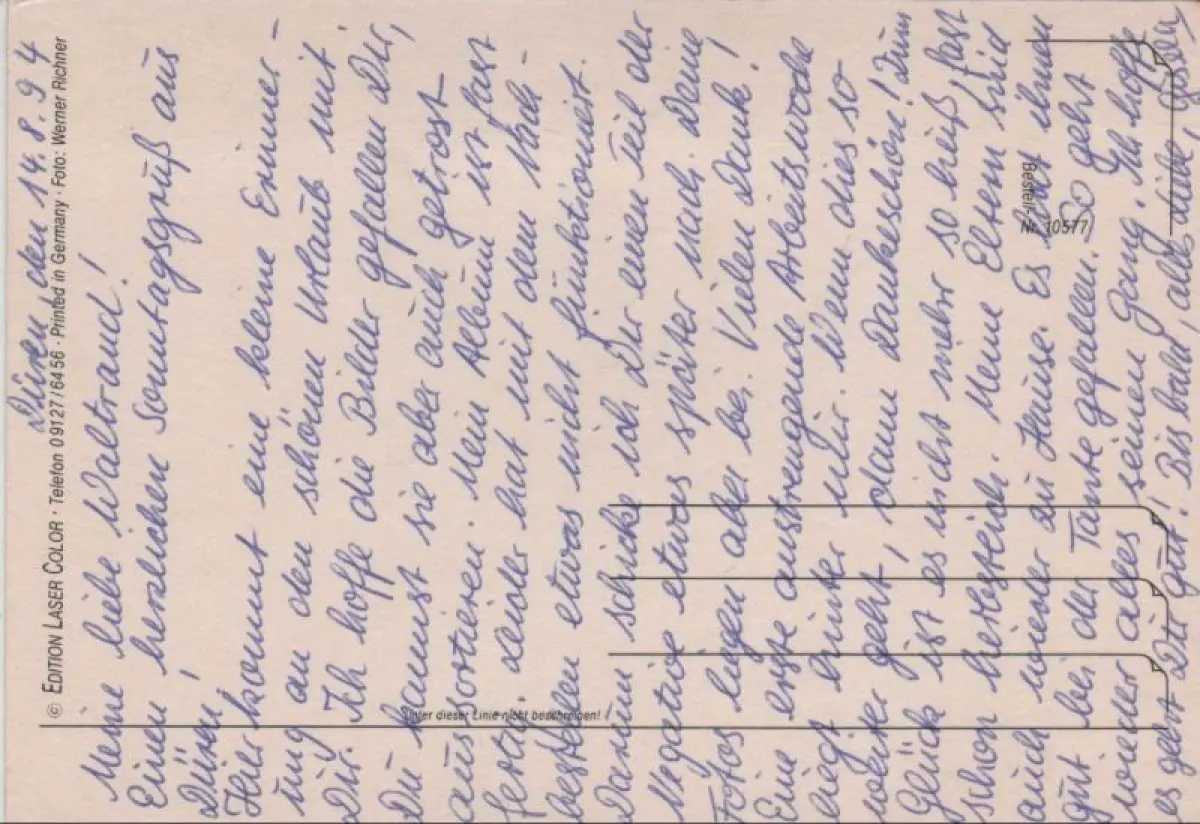 Düren, den 14.8.94
© EDITION LASER COLOR · Telefon 09127/6456 · Printed in Germany · Foto: Werner Richner
Meine liebe Waltraud!
Einen herzlichen Sonntagsgruß aus
Düren!
Hier kommt eine kleine Erinner-
ung an den schönen Urlaub mit
Dir. Ich hoffe die Bilder gefallen Dir,
Du kannst sie aber auch getrost
aussortieren. Mein Album ist fast
fertig. Leider hat mit dem Nach-
bestellen etwas nicht funktioniert.
Unter dieser Linie nicht beschreiben!
Darum schicke ich Dir einen Teil der
Negative etwas später nach. Deine
Fotos liegen aber bei. Vielen Dank!
Eine erste anstrengende Arbeitswoche
liegt hinter mir. Wenn dies so
weiter geht, dann Dankeschön! Zum
Glück ist es nicht mehr so heiß, fast
schon herbstlich. Meine Eltern sind
auch wieder zu Hause. Es hat ihnen
Bestell-
Nr. 10577
gut bei der Tante gefallen. So geht
wieder alles seinen Gang. Ich hoffe
es geht Dir gut! Bis bald, alles Liebe,